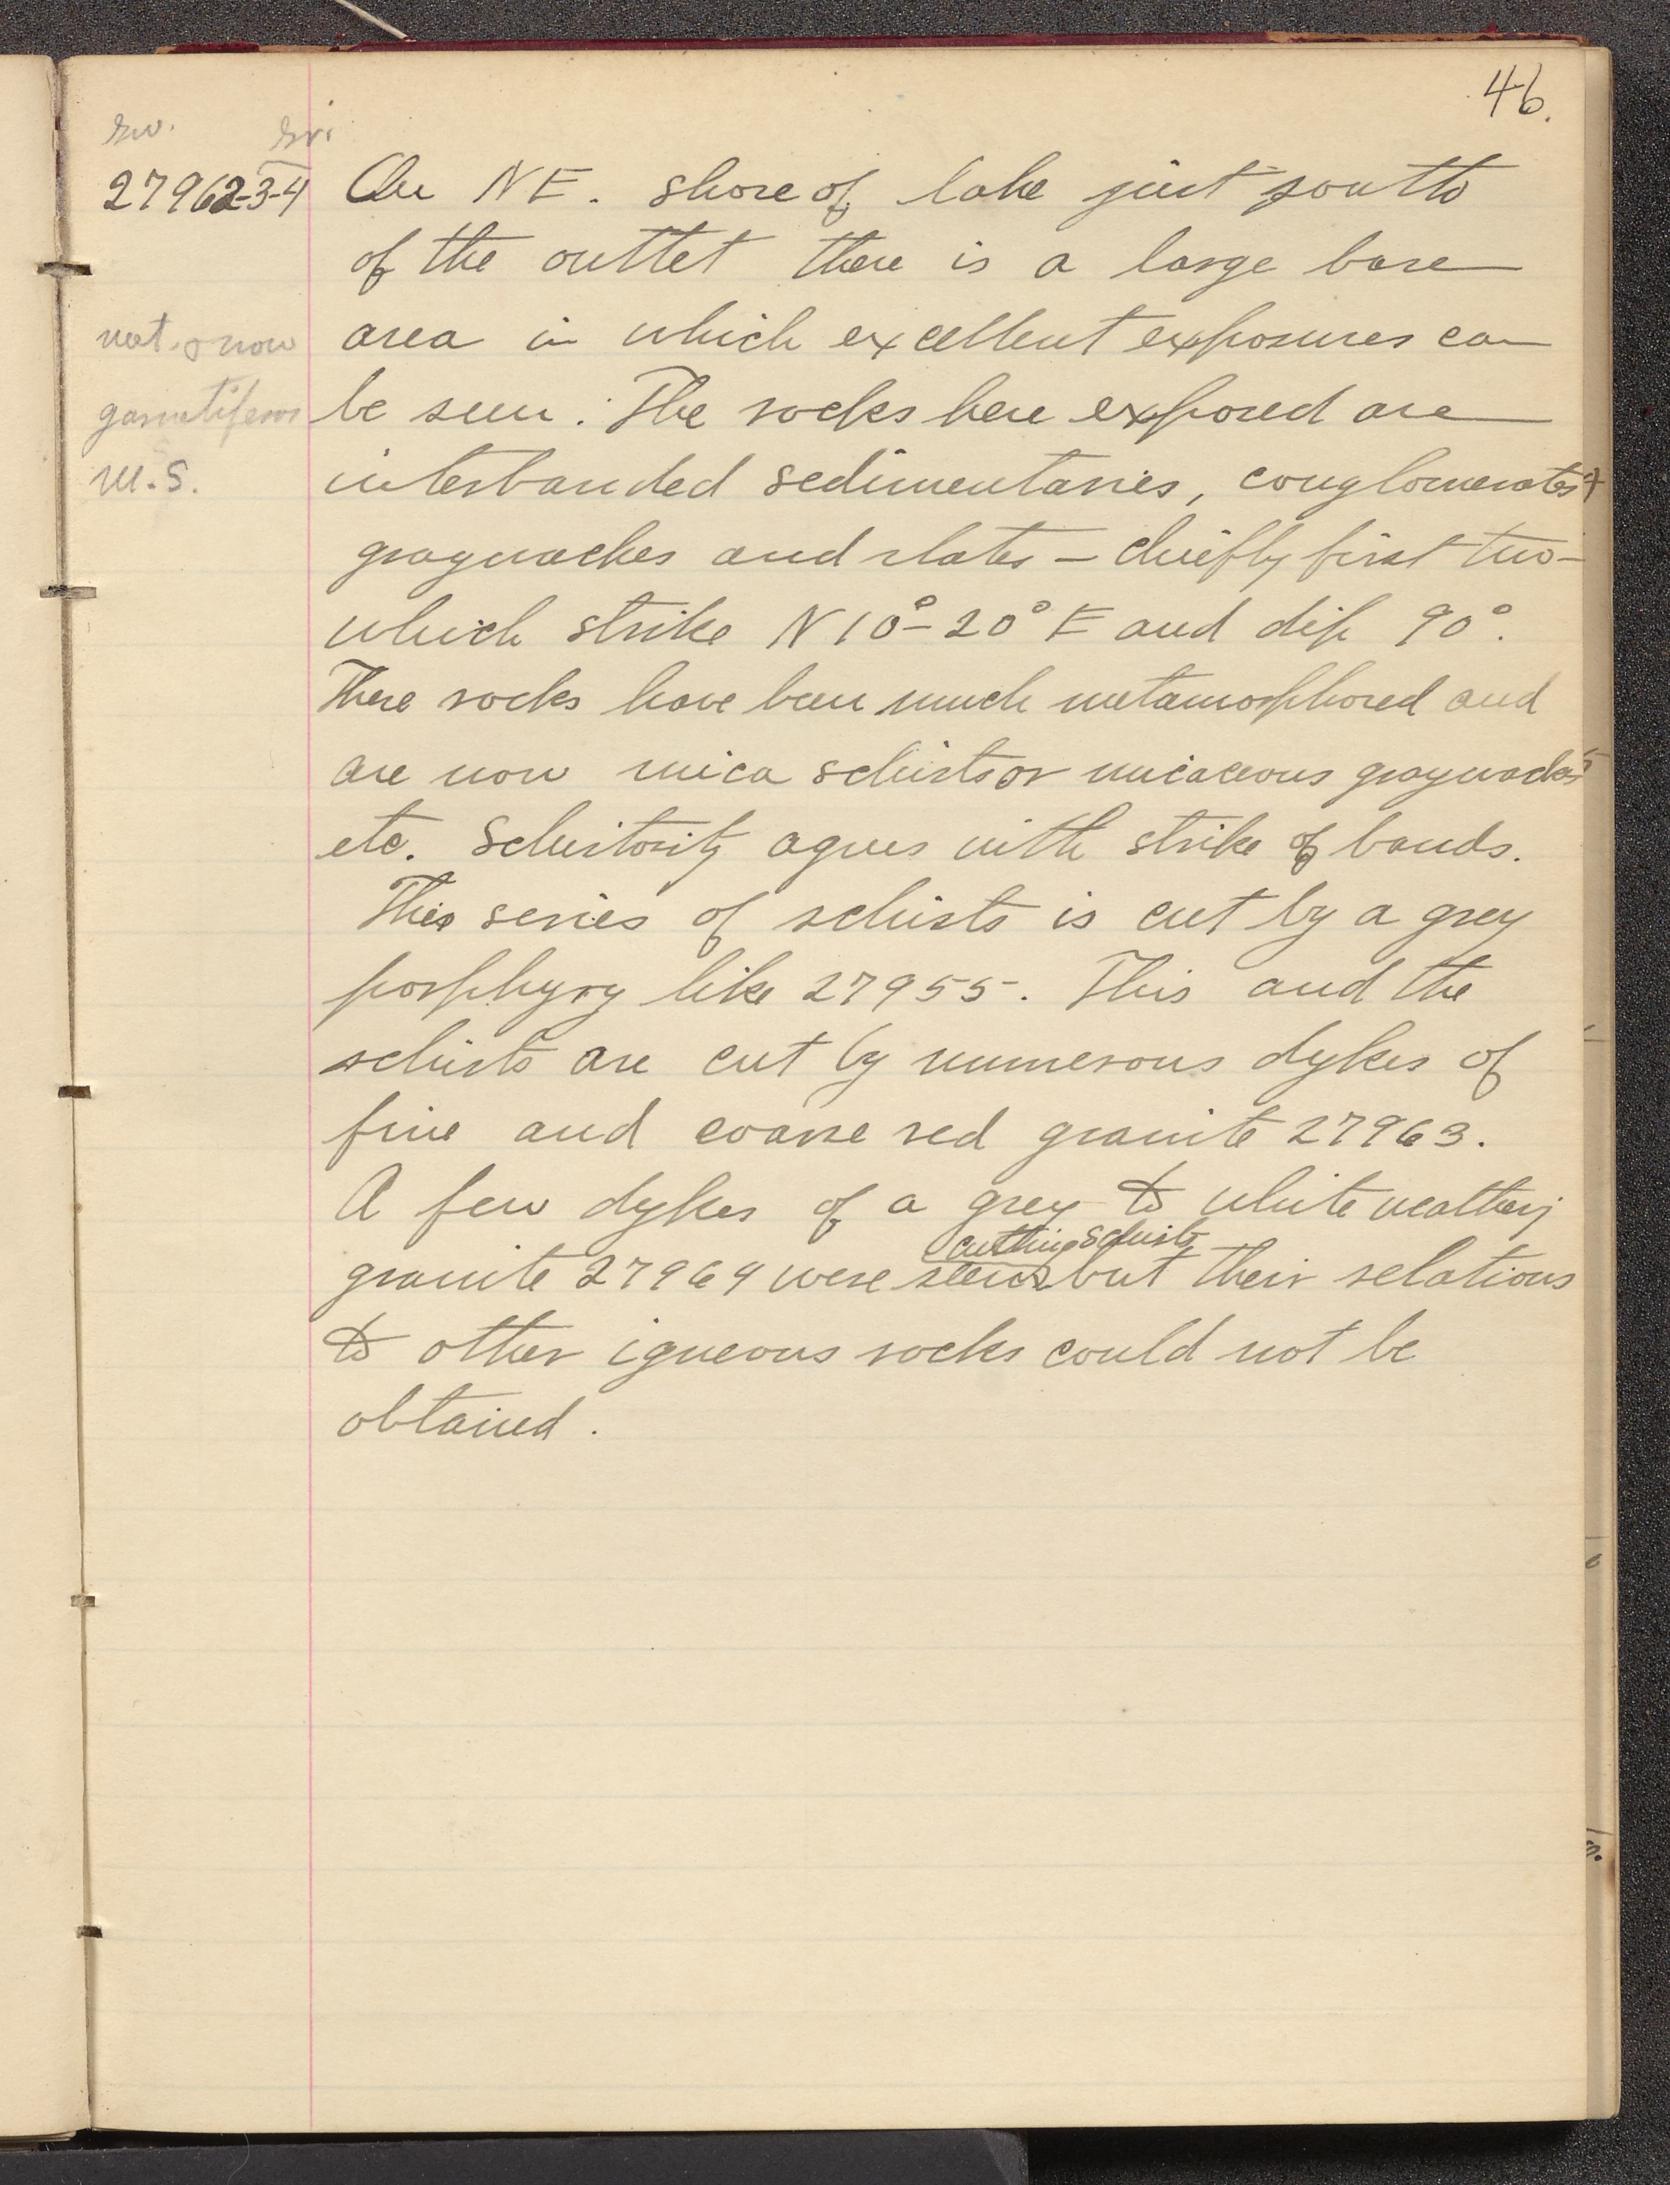 46.
27962-3-4 On NE. shore of lake just south
of the outlet there is a large bare
area in which excellent exposures can
be seen. The rocks here exposed are
garnetiferous
M.S.
interbanded sedimentaries, conglomerates &
graywackes and slates – chiefly first two –
which strike N 10°–20° E and dip 90°.
These rocks have been much metamorphosed and
are now mica schists or micaceous graywackes
etc. Schistosity agrees with strike of bands.
This series of schists is cut by a grey
porphyry like 27955. This and the
schists are cut by numerous dykes of
fine and coarse red granite 27963.
A few dykes of a grey to white weather'g
cutting schists
granite 27964 were seen but their relations
to other igneous rocks could not be
obtained.